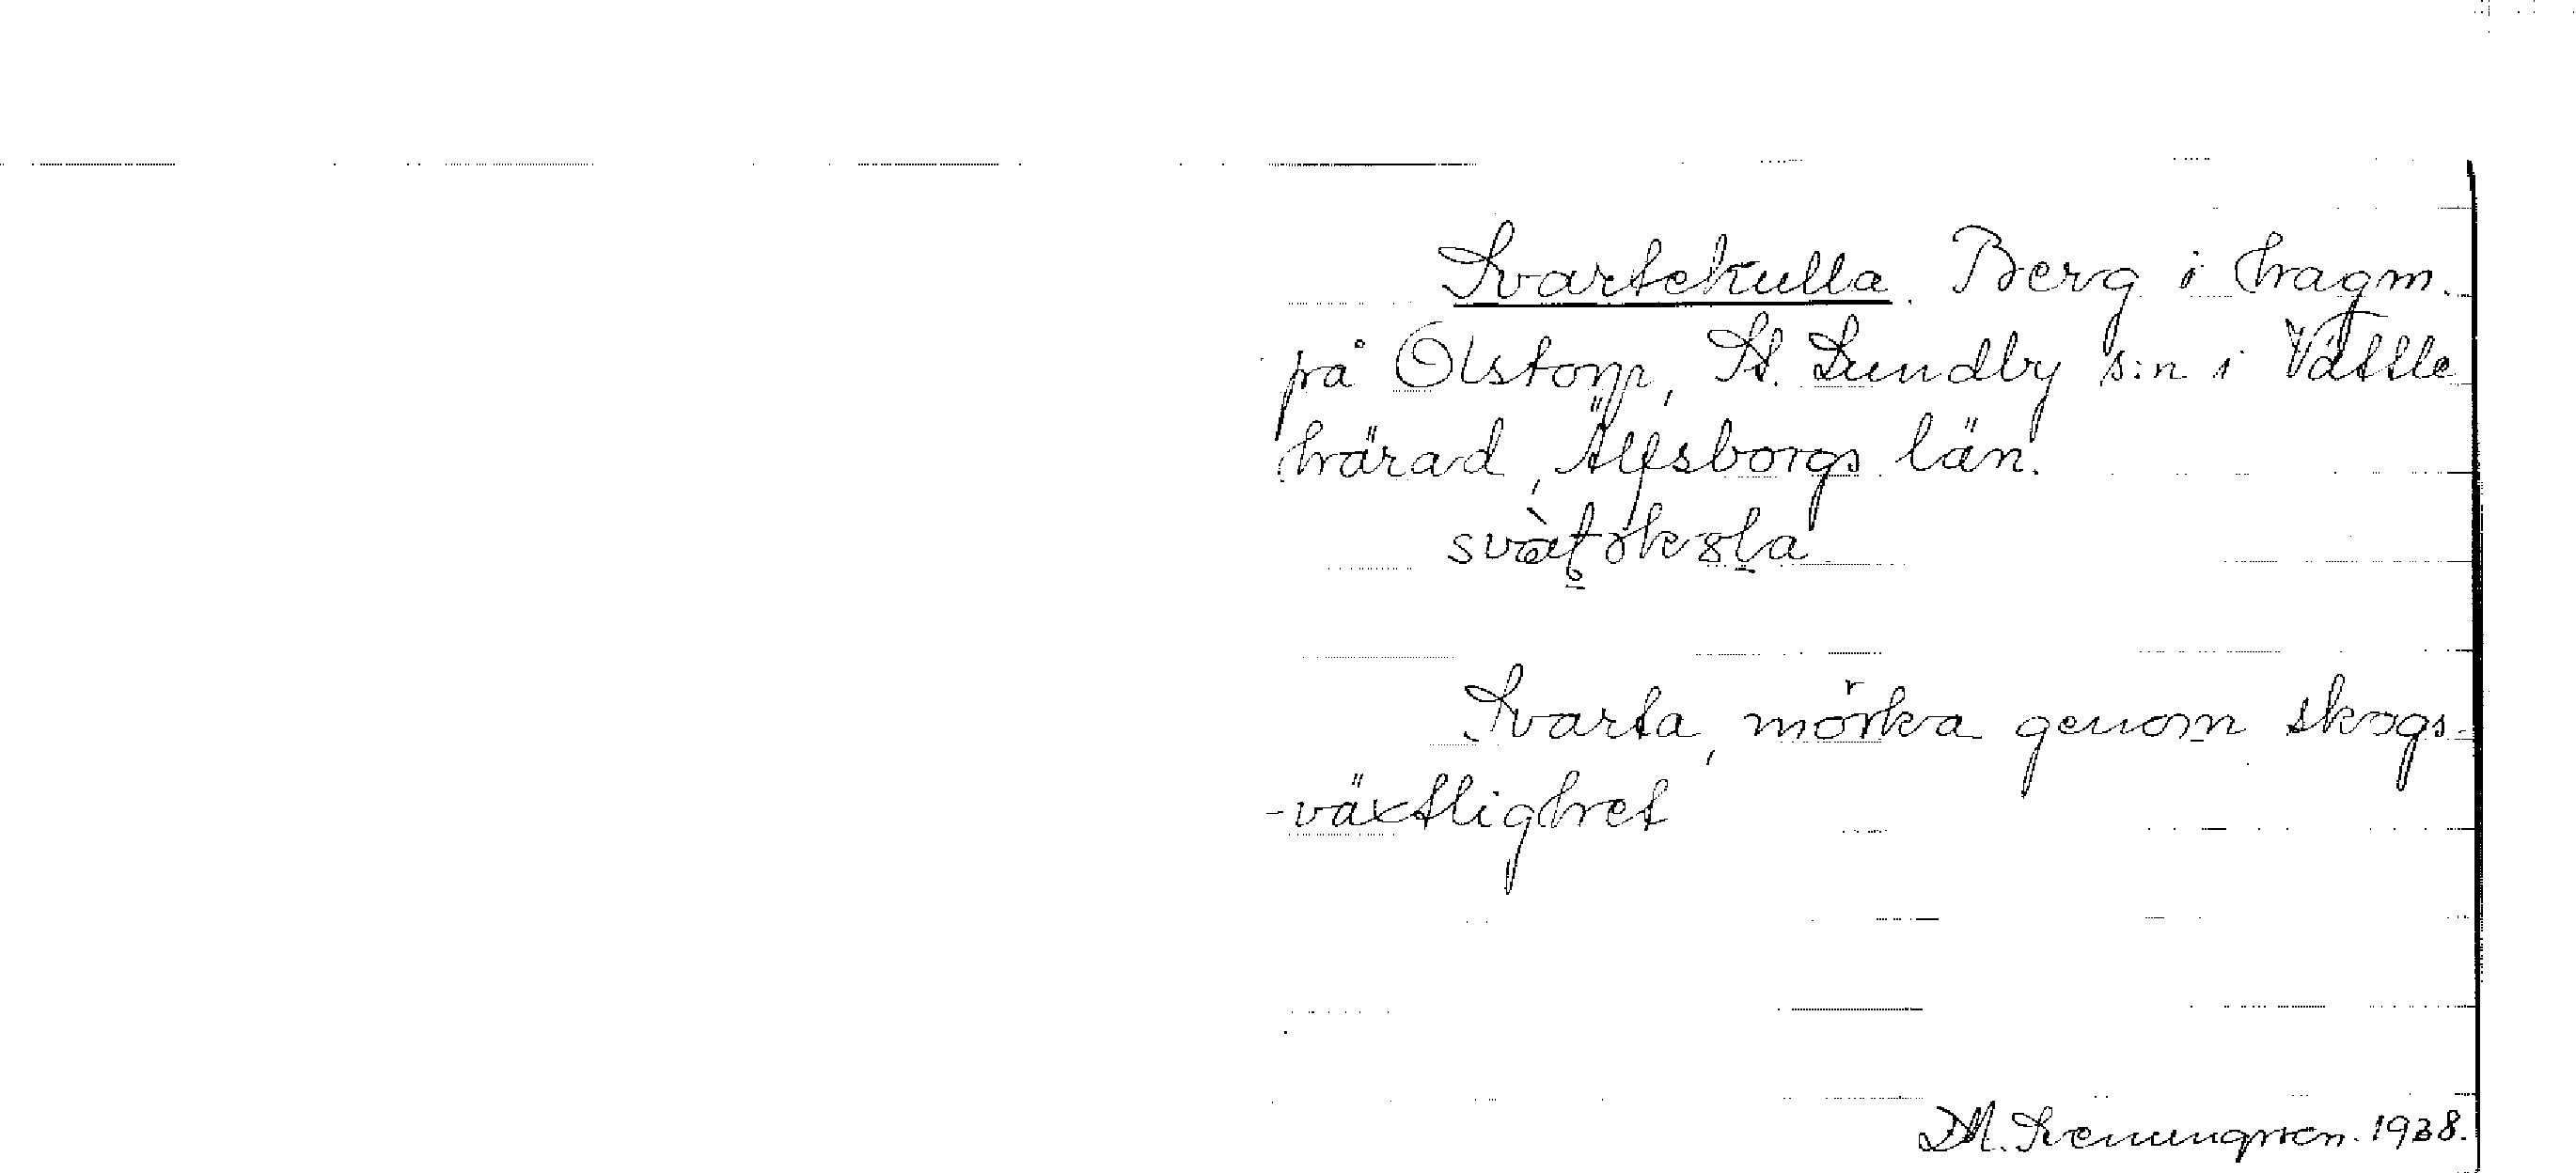 Svartekulla. Berg i hagm.
på Olstorp, St. Lundby s:n i Vättle
härad, Älfsborgs län.
Svarta, mörka genom skogs-
-växtlighet
D.M. 1938.